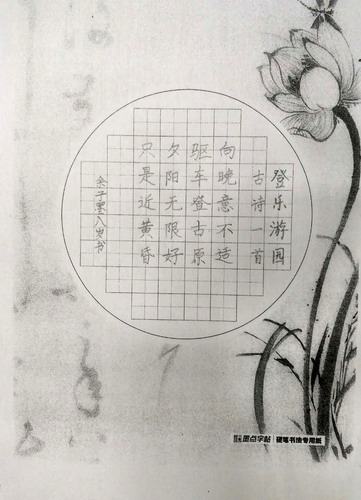 登乐游园
古诗一首
向晚意不适
驱车登古原
夕阳无限好
只是近黄昏
余子雯八岁书
墨点字帖 硬笔书法专用纸